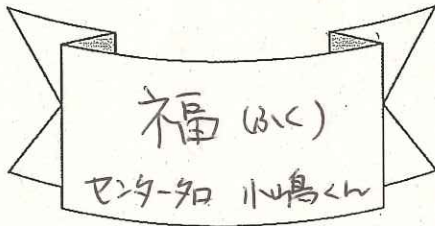 福(ふく)
センター夕口 小嶋くん